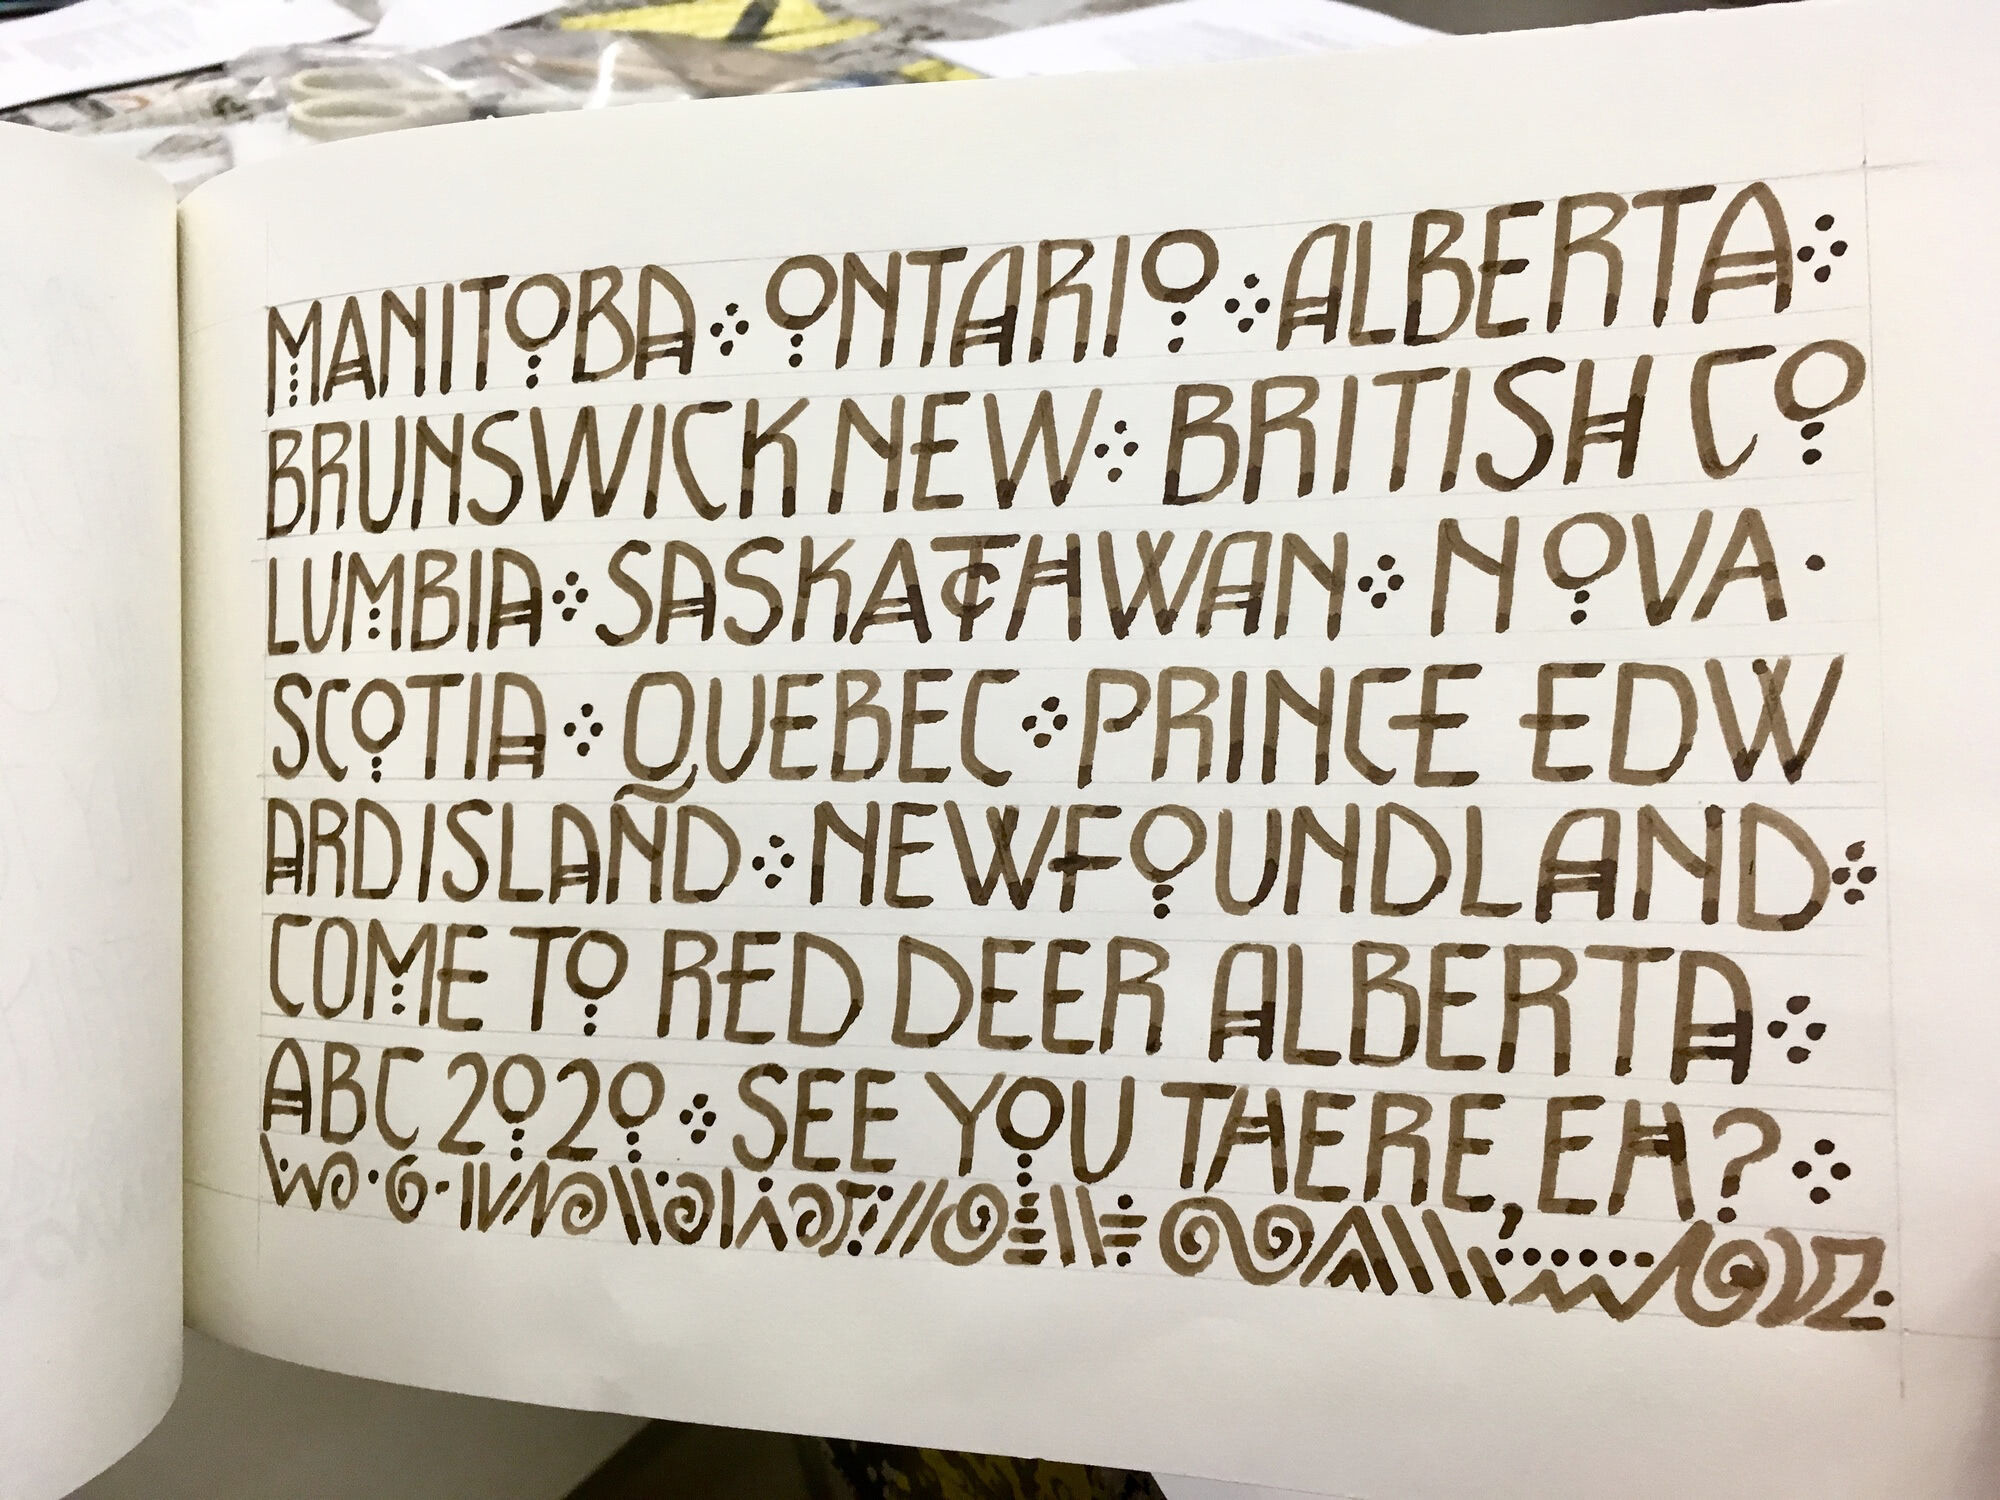 MANITOBA ⁘ ONTARIO ⁘ ALBERTA ⁘
BRUNSWICK NEW ⁘ BRITISH CO
LUMBIA ⁘ SASKATCHWAN ⁘ NOVA ·
SCOTIA ⁘ QUEBEC ⁘ PRINCE EDW
ARD ISLAND ⁘ NEWFOUNDLAND ⁘
COME TO RED DEER ALBERTA ⁘
ABC 2020 ⁘ SEE YOU THERE, EH? ⁘